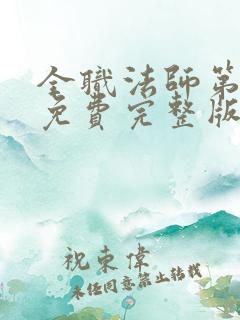 全職法師第
免費完整版
祝東偉
未任同意禁止转载